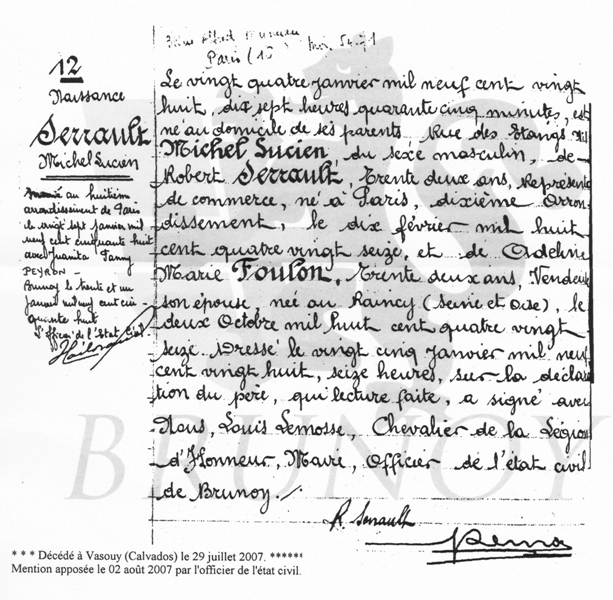 Paris (10
12
Naissance
Serrault
Michel Lucien
Marié au huitième
arrondissement de Paris
le vingt sept janvier mil
neuf cent cinquante huit
avec Juanita Fanny
PEYRON -
Brunoy le trente et un
janvier mil neuf cent cin-
quante huit
L'officier de l'Etat Civil
Le vingt quatre janvier mil neuf cent vingt
huit, dix sept heures quarante cinq minutes, est
né au domicile de ses parents Rue des Etangs
Michel Lucien, du sexe masculin, de
Robert Serrault, trente deux ans, Représent
de commerce, né à Paris, dixième Arron
dissement, le dix février mil huit
cent quatre vingt seize, et de Adeline
Marie Foulon, trente deux ans, Vendeuse
son épouse, née au Raincy (Seine et Oise), le
deux Octobre mil huit cent quatre vingt
seize. Dressé le vingt cinq janvier mil neuf
cent vingt huit, seize heures, sur la déclara
tion du père, qui lecture faite, a signé avec
Nous, Louis Lemosse, Chevalier de la Légion
d'Honneur, Maire, Officier de l'état civil
de Brunoy./.
R. Serrault
BRUNOY
* * * Décédé à Vasouy (Calvados) le 29 juillet 2007. ******
Mention apposée le 02 août 2007 par l'officier de l'état civil.